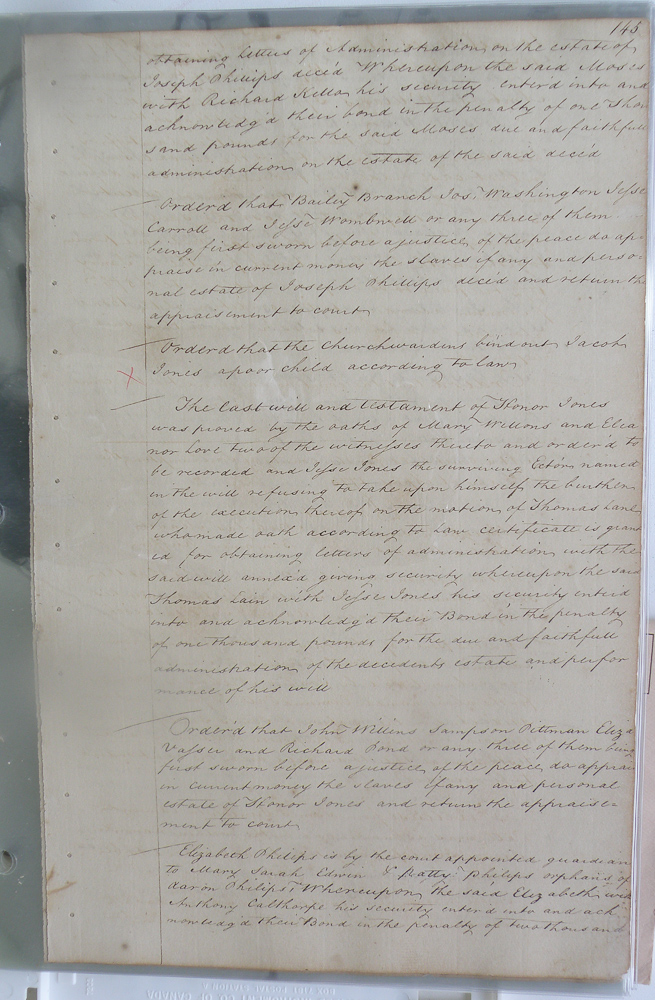 145
obtaining letters of Administration on the estate of
Joseph Phillips dec'd Whereupon the said Moses
with Richard Kello his security enter'd into and
acknowledg'd their bond in the penalty of one Thou
sand pounds for the said Moses due and faithfull
administration on the estate of the said dec'd
Order'd that Bailey Branch Jos. Washington Jesse
Carroll and Jesse Wombwell or any three of them
being first sworn before a justice of the peace do ap
praise in current money the slaves if any and perso
nal estate of Joseph Phillips dec'd and return the
appraisement to court
Order'd that the Churchwardens bind out Jacob
Jones a poor child according to law
The Last will and testament of Honor Jones
was proved by the oaths of Mary Willons and Elea
nor Love two of the witnesses thereto and order'd to
be recorded and Jesse Jones the surviving Ect'or named
in the will refusing to take upon himself the burthen
of the execution thereof on the motion of Thomas Lane
who made oath according to Law certificate is grant
ed for obtaining letters of administration with the
said will annex'd giving security whereupon the said
Thomas Lain with Jesse Jones his security enter'd
into and acknowledg'd their Bond in the penalty
of one thousand pounds for the due and faithfull
administration of the decedents estate and perfor
mance of his will
Order'd that John Willens Sampson Pittman Eliz'd
Vasser and Richard Pond or any three of them being
first sworn before a justice of the peace do apprais
in current money the slaves If any and personal
estate of Honor Jones and return the appraise
ment to court
Elizabeth Philips is by the court appointed guardian
to Mary Sarah Edwin & Patty Philips orphans of
Aaron Philips Whereupon the said Elizabeth with
Anthony Calthorpe his security enter'd into and ack
nowledg'd their Bond in the penalty of two thousand